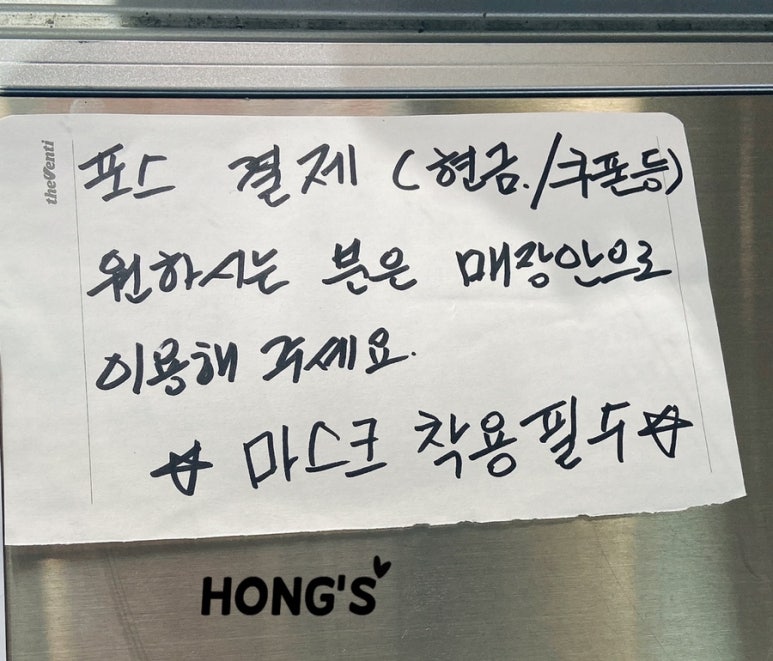 theVenti
포스 결제 (현금./쿠폰등)
원하시는 분은 매장안으로
이용해 주세요.
☆ 마스크 착용필수☆
HONG'S